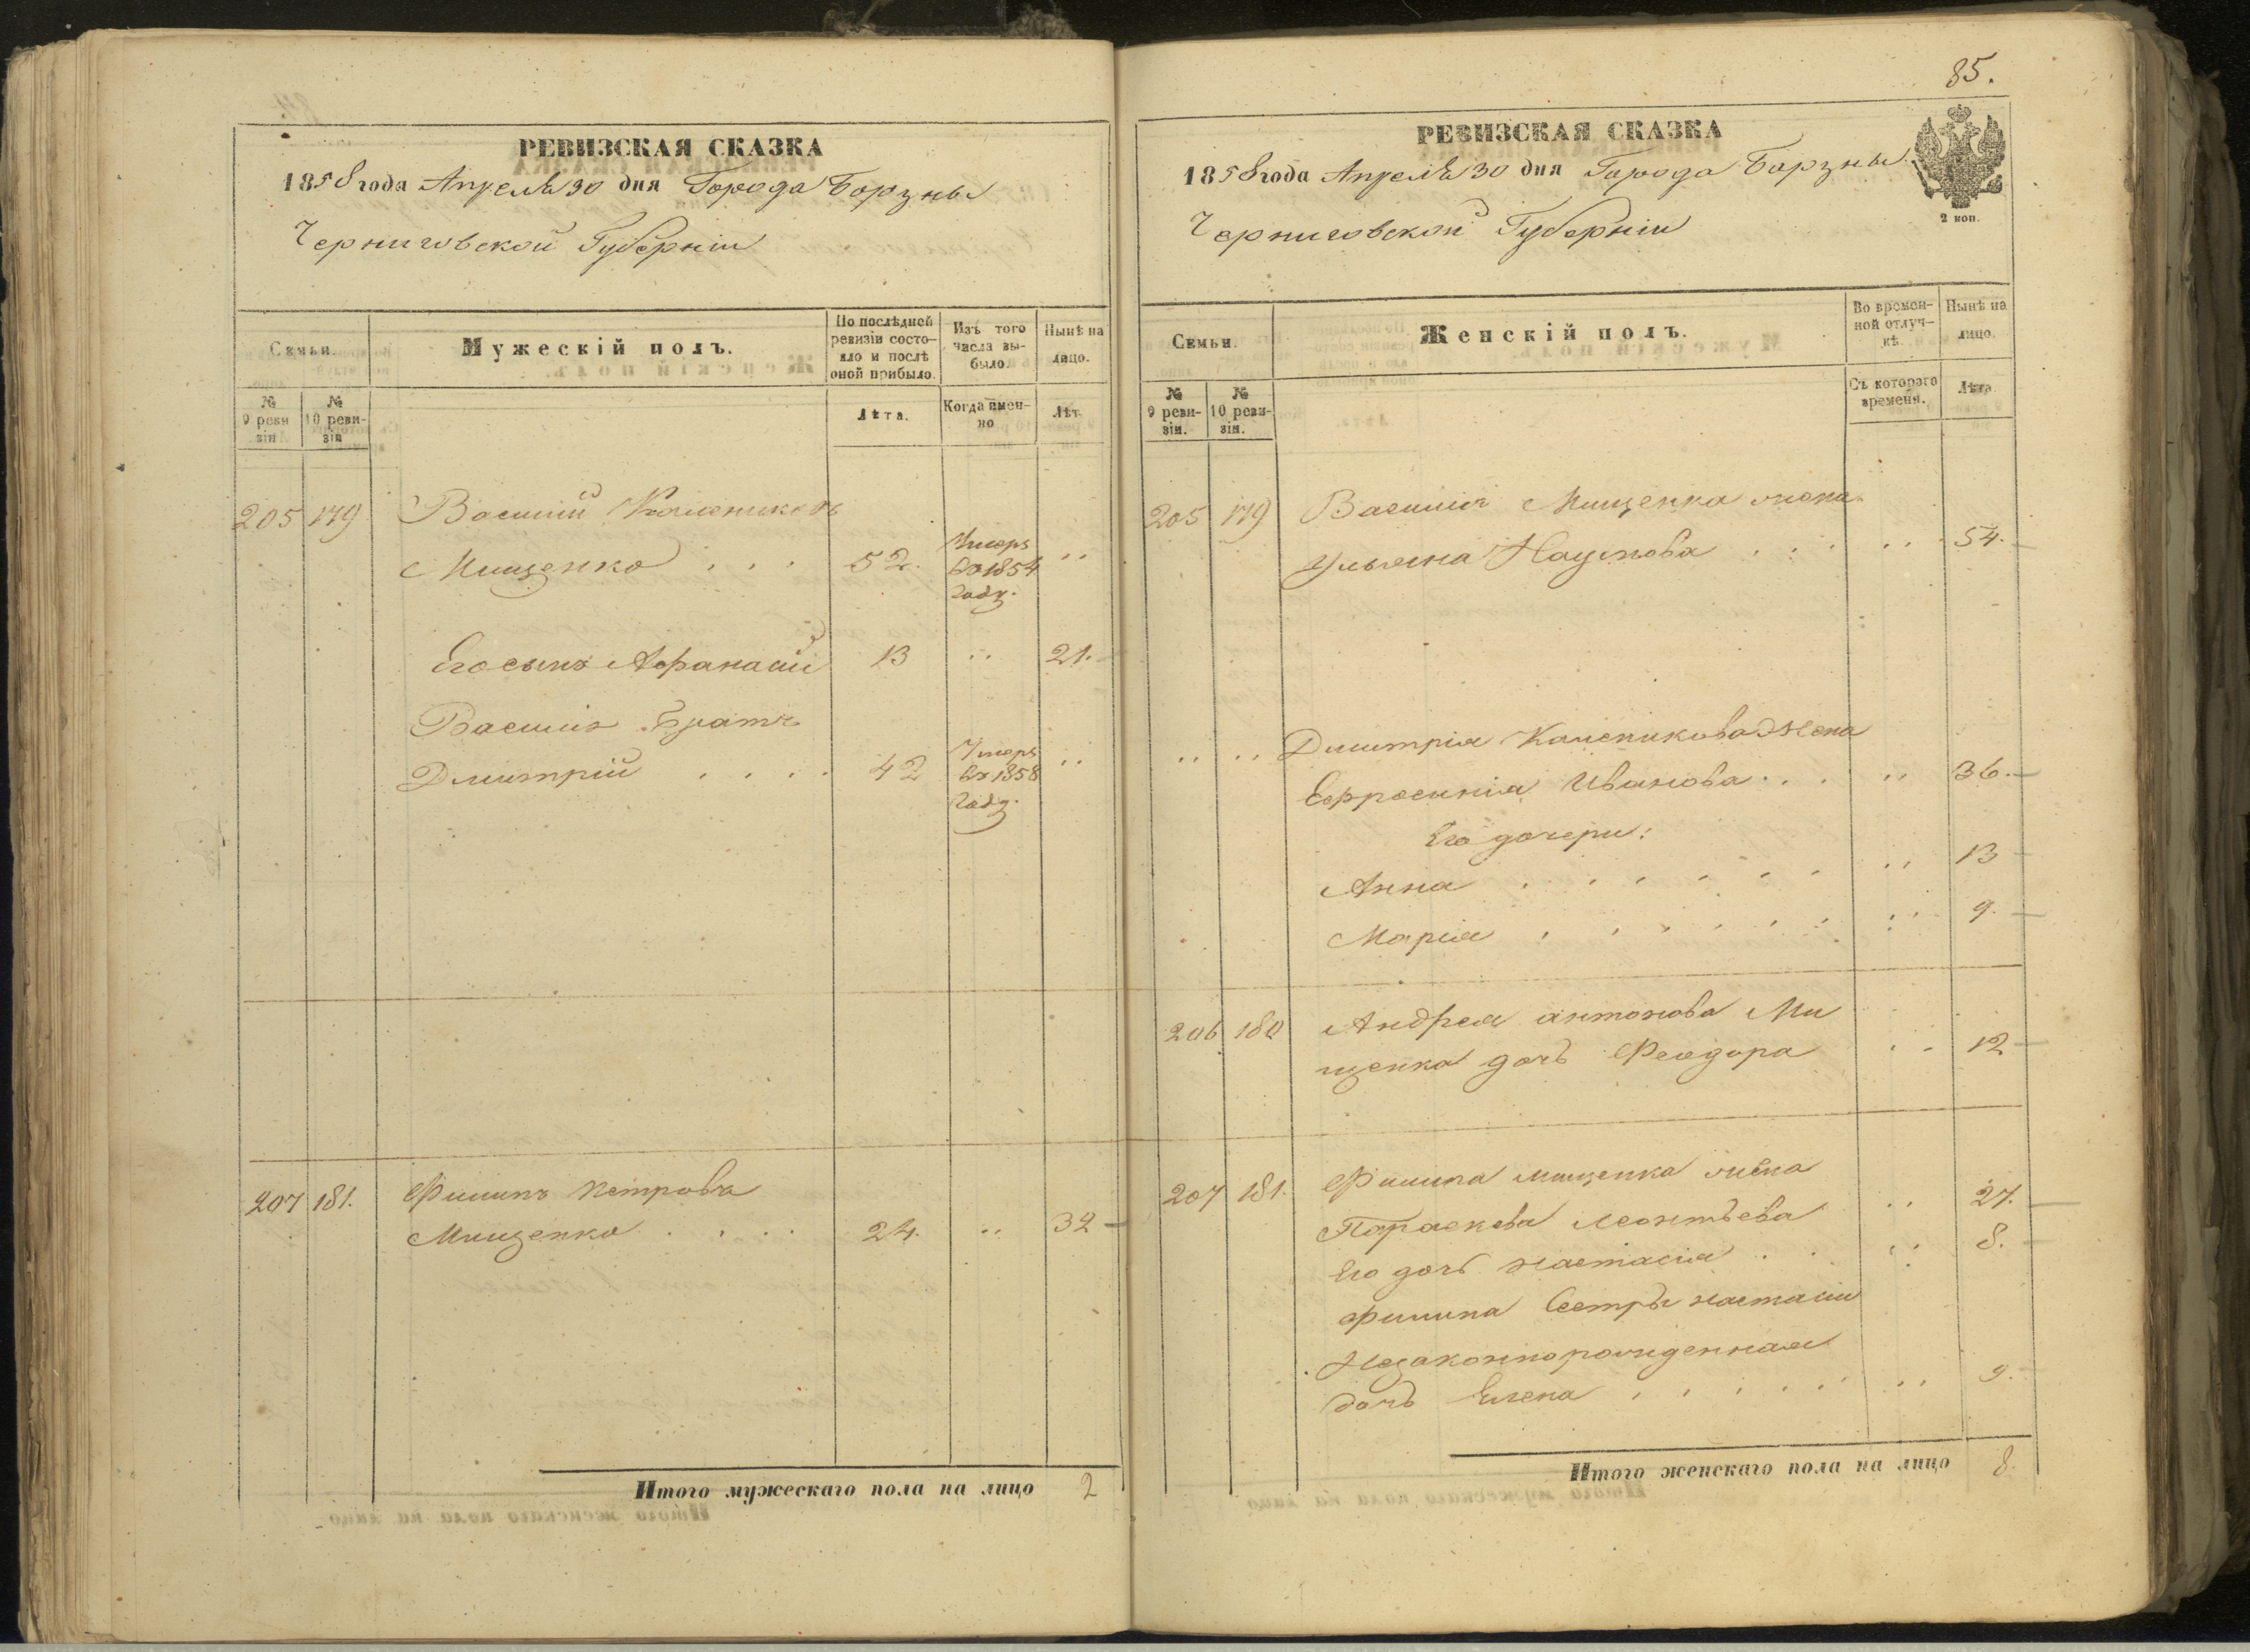 РЕВИЗСКАЯ СКАЗКА
1858 года Апреля 30 дня Города Борзны
Черниговской Губерніи
Семьи.
Мужескій полъ.
По послѣдней ревизіи состояло и послѣ оной прибыло.
Изъ того числа выбыло.
Нынѣ на лицо.
№ 9 ревизіи
№ 10 ревизіи
Лѣта.
Когда имен-
но
Лѣт.
205 179 Василій Калениковъ
Мищенко . . . 52. Умеръ
въ 1854
году.
Его сынъ Афанасій 13 " 21.
Василія Братъ
Дмитрій . . . . 42 Умеръ
въ 1858
году.
207 181. Филипъ Петровъ
Мищенко . . . . 24. " 32
Итого мужескаго пола на лицо 2
85.
РЕВИЗСКАЯ СКАЗКА
1858 года Апреля 30 дня Города Борзны
Черниговской Губерніи
2 коп.
Семьи.
Женскій полъ.
Во времен-
ной отлуч-
кѣ.
Нынѣ на
лицо.
№ 9 реви-
зіи.
№ 10 реви-
зіи.
Съ котораго
времени.
Лѣта.
205 179 Василія Мищенка жена
Ульяна Наумова . . . " 54.
" " Дмитрія Каленикова жена
Ефросинія Иванова . . . " 36.
Его дочери:
Анна . . . . . . " 13
Марія . . . . . . " 9.
206 180 Андрея антонова Ми
щенка дочь Феодора " 12
207 181. Филипа мищенка жена
Параскева Леонтьева " 27.
Его дочь настасія . . " 8.
Филипа Сестры настасіи
Незаконнорожденная
дочь Елена . . . . . " 9.
Итого женскаго пола на лицо 8.